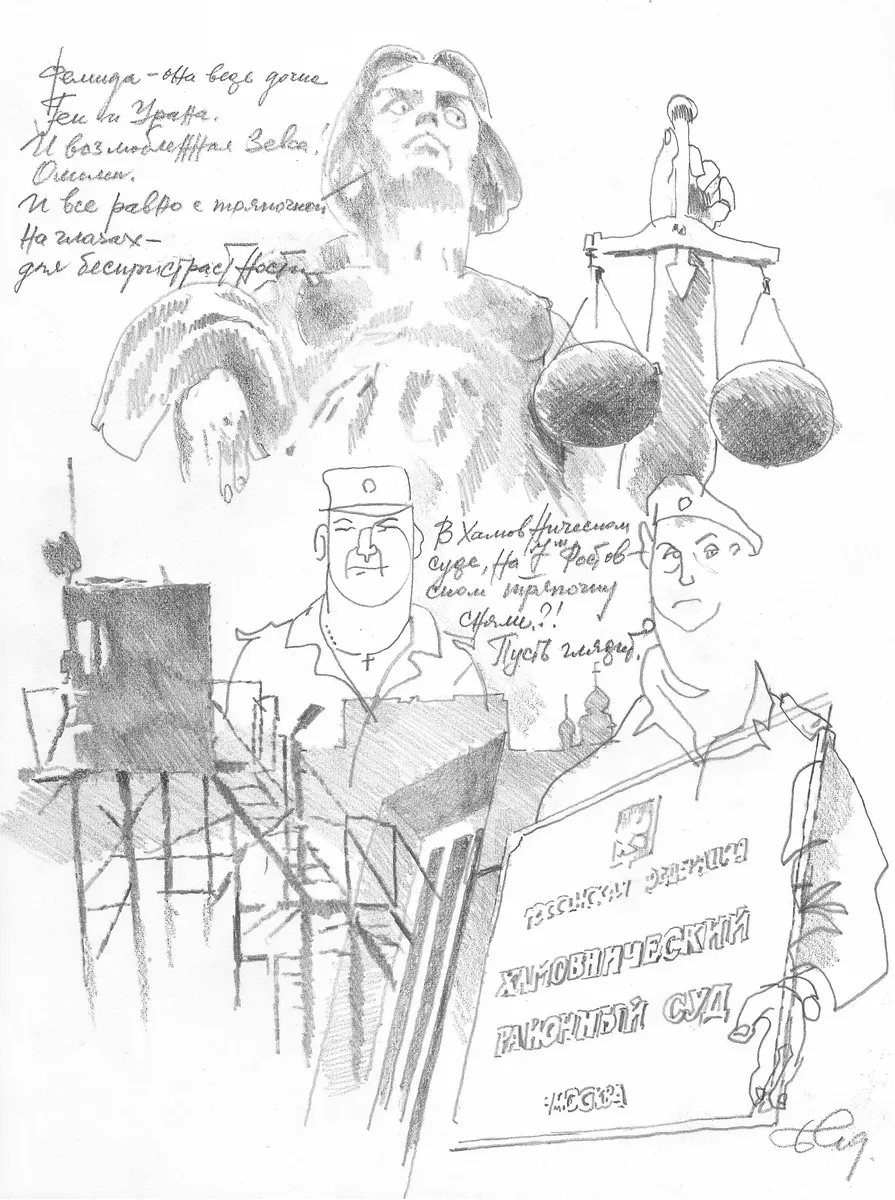 Фемида – она ведь дочка
Геи и Урана.
И возлюбленная Зевса!
Олимп.
И все равно с тряпочкой
на глазах –
для беспристрастности
В Хамовническом
суде, на 7ом Ростов-
ском тряпочку
сняли?!
Пусть глядит.
РОССИЙСКАЯ ФЕДЕРАЦИЯ
ХАМОВНИЧЕСКИЙ
РАЙОННЫЙ СУД
МОСКВА